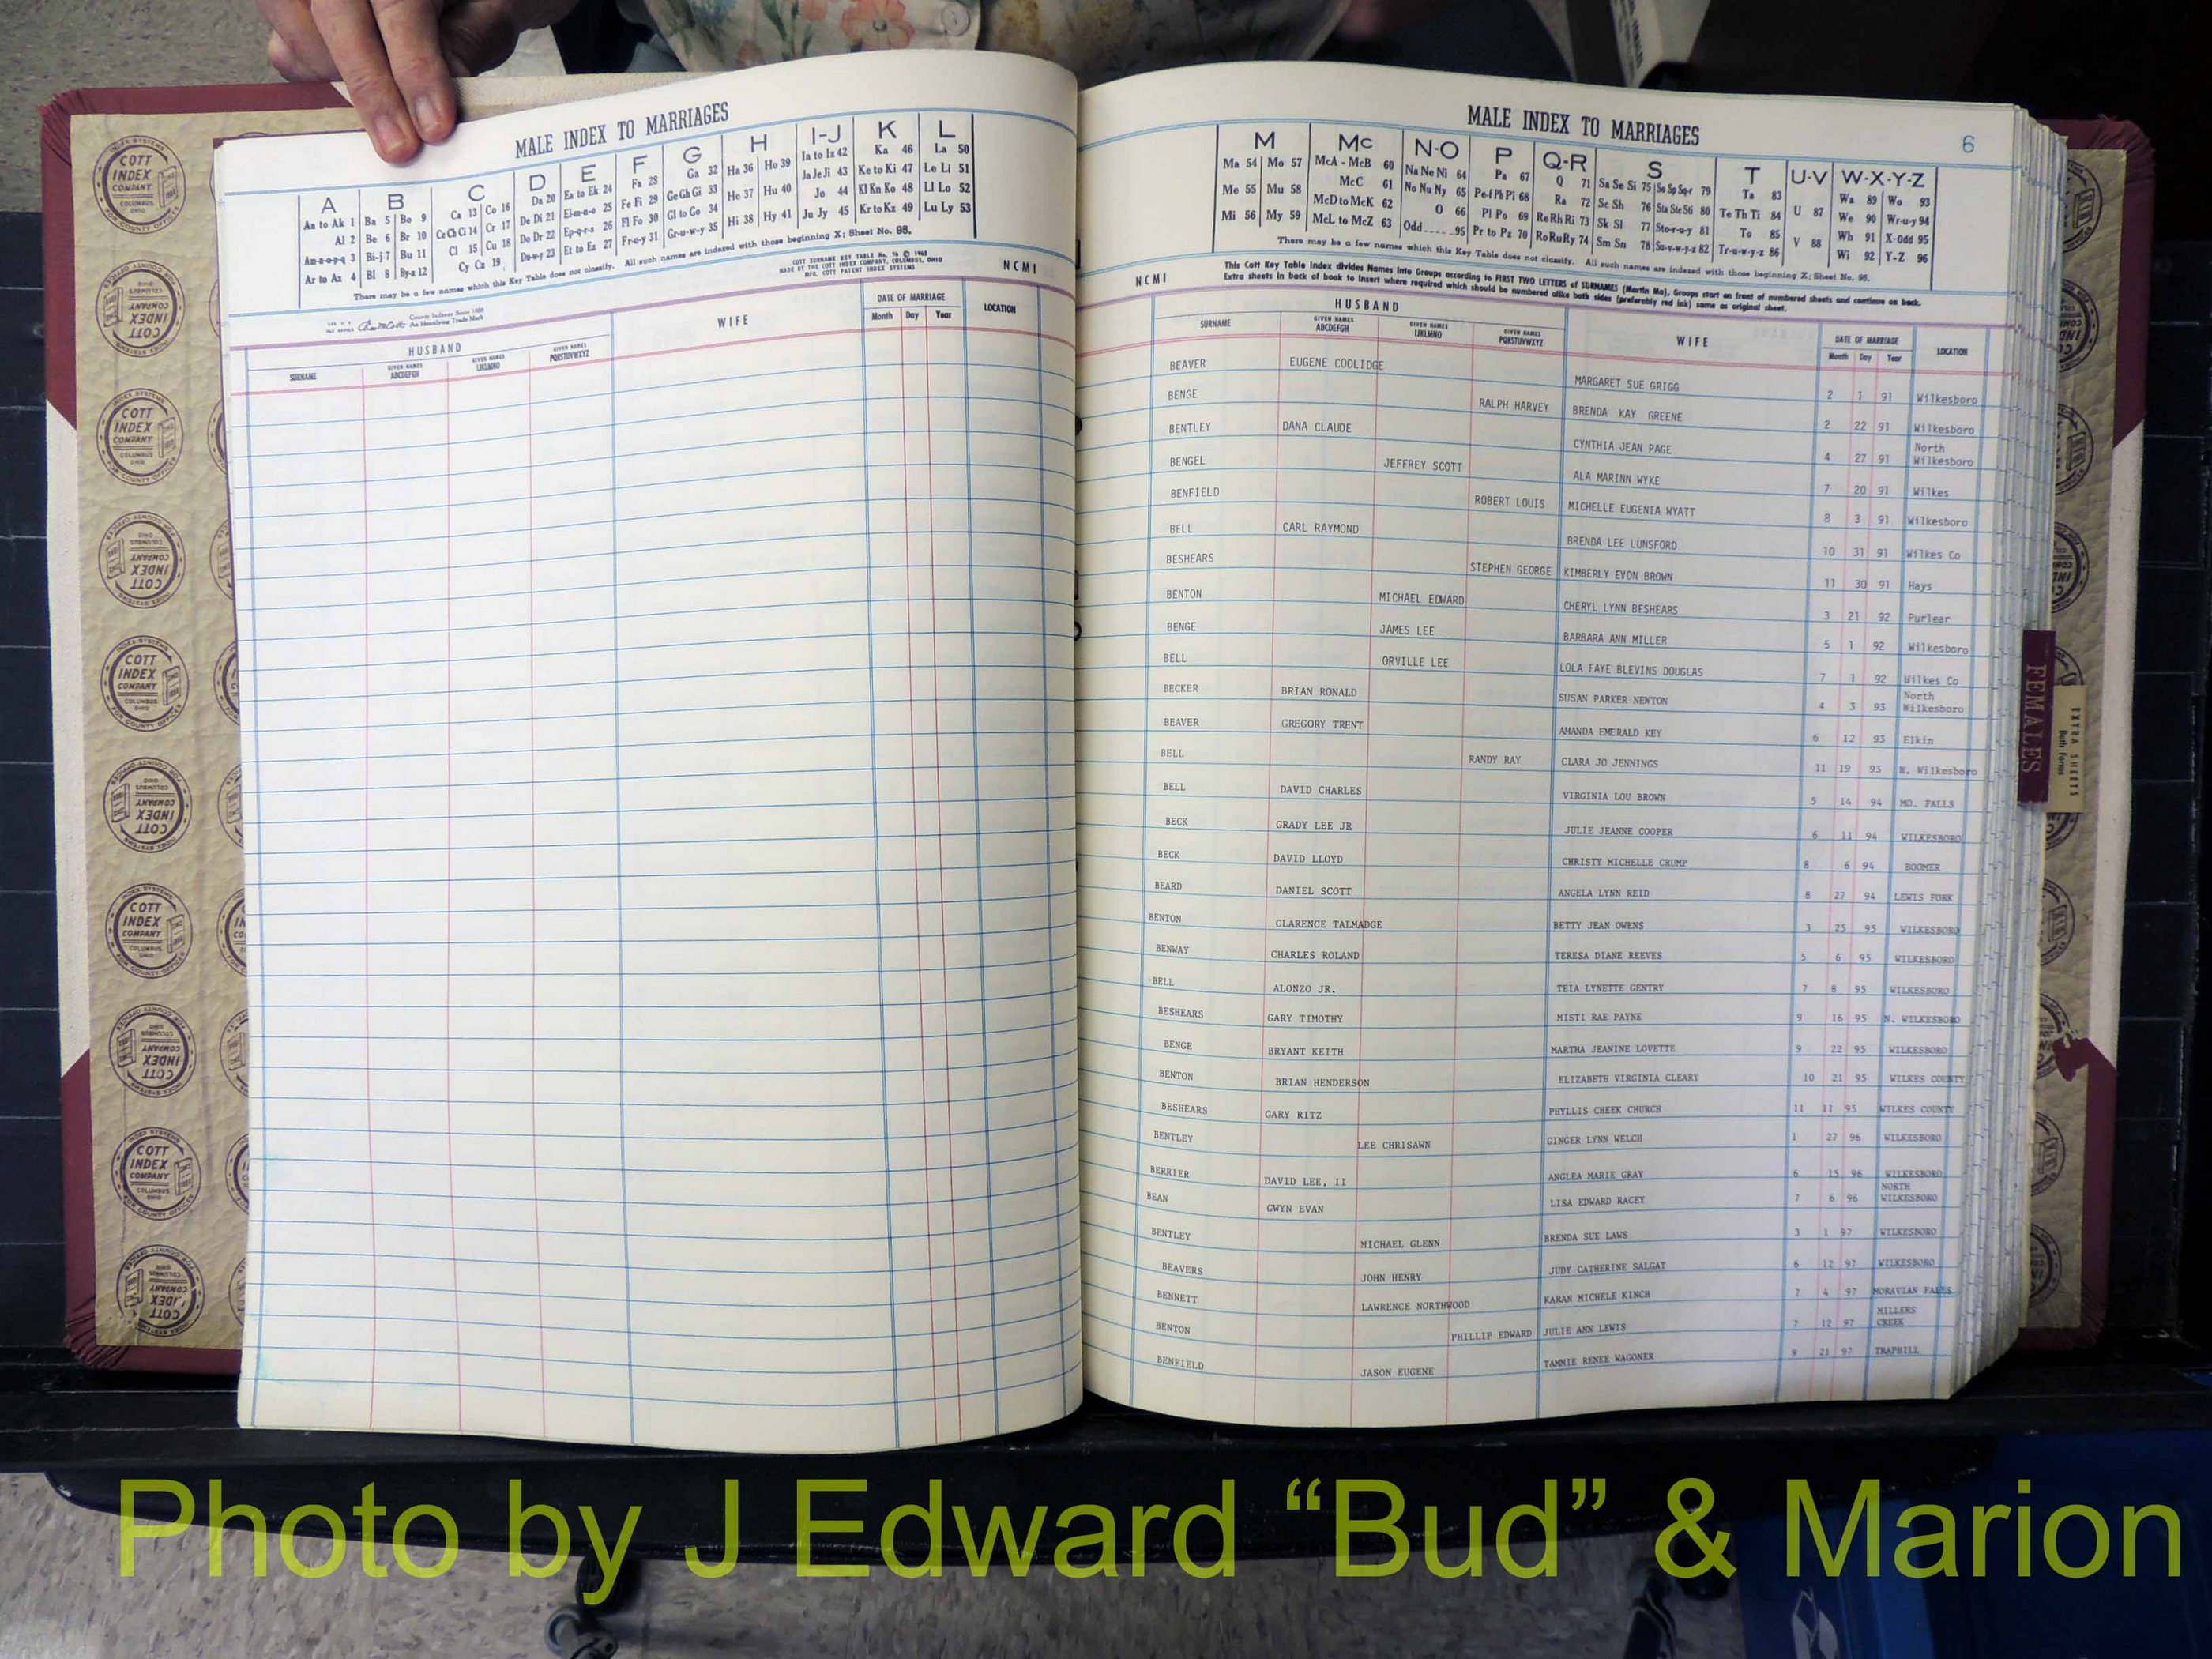 MALE INDEX TO MARRIAGES
A B C D E F G H I-J K L
Aa to Ak 1 Ba 5 Bo 9 Ca 13 Co 16 Da 20 Ea to Ek 24 Fa 28 Ga 32 Ha 36 Ho 39 Ia to Iz 42 Ka 46 La 50
Al 2 Be 6 Br 10 Ce Ch Ci 14 Cr 17 De Di 21 El-m-n-o 25 Fe Fi 29 Ge Gh Gi 33 He 37 Hu 40 Ja Je Ji 43 Ke to Ki 47 Le Li 51
Am-n-o-p-q 3 Bi-j 7 Bu 11 Cl 15 Cu 18 Do Dr 22 Ep-q-r-s 26 Fl Fo 30 Gl to Go 34 Hi 38 Hy 41 Jo 44 Kl Kn Ko 48 Ll Lo 52
Ar to Az 4 Bl 8 By-z 12 Cy Cz 19 Du-w-y 23 Et to Ez 27 Fr-u-y 31 Gr-u-w-y 35 Ju Jy 45 Kr to Kz 49 Lu Ly 53
There may be a few names which this Key Table does not classify. All such names are indexed with those beginning X; Sheet No. 95.
COTT SURNAME KEY TABLE
MADE BY THE COTT INDEX COMPANY, COLUMBUS, OHIO
MFG. COTT PATENT INDEX SYSTEMS
NCMI
County Indexes Since 1888
An Identifying Trade Mark
HUSBAND WIFE DATE OF MARRIAGE LOCATION
SURNAME GIVEN NAMES ABCDEFGH GIVEN NAMES IJKLMNO GIVEN NAMES PQRSTUVWXYZ Month Day Year
MALE INDEX TO MARRIAGES
6
M Mc N-O P Q-R S T U-V W-X-Y-Z
Ma 54 Mo 57 McA - McB 60 Na Ne Ni 64 Pa 67 Q 71 Sa Se Si 75 So Sp Sq-r 79 Ta 83 U 87 Wa 89 Wo 93
Me 55 Mu 58 McC 61 No Nu Ny 65 Pe-f Ph Pi 68 Ra 72 Sc Sh 76 Sta Ste Sti 80 Te Th Ti 84 V 88 We 90 Wr-u-y 94
Mi 56 My 59 McD to McK 62 O 66 Pl Po 69 Re Rh Ri 73 Sk Sl 77 Sto-r-u-y 81 To 85 Wh 91 X-Odd 95
McL to McZ 63 Odd 95 Pr to Pz 70 Ro Ru Ry 74 Sm Sn 78 Su-v-w-y-z 82 Tr-u-w-y-z 86 Wi 92 Y-Z 96
There may be a few names which this Key Table does not classify. All such names are indexed with those beginning X; Sheet No. 95.
NCMI
This Cott Key Table Index divides Names into Groups according to FIRST TWO LETTERS of SURNAMES (Martin Ma), Groups start on front of numbered sheets and continue on back.
Extra sheets in back of book to insert where required which should be numbered alike both sides (preferably red ink) same as original sheet.
HUSBAND WIFE DATE OF MARRIAGE LOCATION
SURNAME GIVEN NAMES ABCDEFGH GIVEN NAMES IJKLMNO GIVEN NAMES PQRSTUVWXYZ Month Day Year
BEAVER EUGENE COOLIDGE MARGARET SUE GRIGG 2 1 91 Wilkesboro
BENGE RALPH HARVEY BRENDA KAY GREENE 2 22 91 Wilkesboro
BENTLEY DANA CLAUDE CYNTHIA JEAN PAGE 4 27 91 North Wilkesboro
BENGEL JEFFREY SCOTT ALA MARINN WYKE 7 20 91 Wilkes
BENFIELD ROBERT LOUIS MICHELLE EUGENIA WYATT 8 3 91 Wilkesboro
BELL CARL RAYMOND BRENDA LEE LUNSFORD 10 31 91 Wilkes Co
BESHEARS STEPHEN GEORGE KIMBERLY EVON BROWN 11 30 91 Hays
BENTON MICHAEL EDWARD CHERYL LYNN BESHEARS 3 21 92 Purlear
BENGE JAMES LEE BARBARA ANN MILLER 5 1 92 Wilkesboro
BELL ORVILLE LEE LOLA FAYE BLEVINS DOUGLAS 7 1 92 Wilkes Co
BECKER BRIAN RONALD SUSAN PARKER NEWTON 4 3 93 North Wilkesboro
BEAVER GREGORY TRENT AMANDA EMERALD KEY 6 12 93 Elkin
BELL RANDY RAY CLARA JO JENNINGS 11 19 93 N. Wilkesboro
BELL DAVID CHARLES VIRGINIA LOU BROWN 5 14 94 MO. FALLS
BECK GRADY LEE JR JULIE JEANNE COOPER 6 11 94 WILKESBORO
BECK DAVID LLOYD CHRISTY MICHELLE CRUMP 8 6 94 BOOMER
BEARD DANIEL SCOTT ANGELA LYNN REID 8 27 94 LEWIS FORK
BENTON CLARENCE TALMADGE BETTY JEAN OWENS 3 25 95 WILKESBORO
BENWAY CHARLES ROLAND TERESA DIANE REEVES 5 6 95 WILKESBORO
BELL ALONZO JR. TEIA LYNETTE GENTRY 7 8 95 WILKESBORO
BESHEARS GARY TIMOTHY MISTI RAE PAYNE 9 16 95 N. WILKESBORO
BENGE BRYANT KEITH MARTHA JEANINE LOVETTE 9 22 95 WILKESBORO
BENTON BRIAN HENDERSON ELIZABETH VIRGINIA CLEARY 10 21 95 WILKES COUNTY
BESHEARS GARY RITZ PHYLLIS CHEEK CHURCH 11 11 95 WILKES COUNTY
BENTLEY LEE CHRISAWN GINGER LYNN WELCH 1 27 96 WILKESBORO
BERRIER DAVID LEE, II ANGLEA MARIE GRAY 6 15 96 WILKESBORO
BEAN GWYN EVAN LISA EDWARD RACEY 7 6 96 NORTH WILKESBORO
BENTLEY MICHAEL GLENN BRENDA SUE LAWS 3 1 97 WILKESBORO
BEAVERS JOHN HENRY JUDY CATHERINE SALGAT 6 12 97 WILKESBORO
BENNETT LAWRENCE NORTHWOOD KARAN MICHELE KINCH 7 4 97 MORAVIAN FALLS
BENTON PHILLIP EDWARD JULIE ANN LEWIS 7 12 97 MILLERS CREEK
BENFIELD JASON EUGENE TAMMIE RENEE WAGONER 9 21 97 TRAPHILL
FEMALES
EXTRA SHEETS
Both Forms
COTT INDEX COMPANY COLUMBUS OHIO
Photo by J Edward “Bud” & Marion